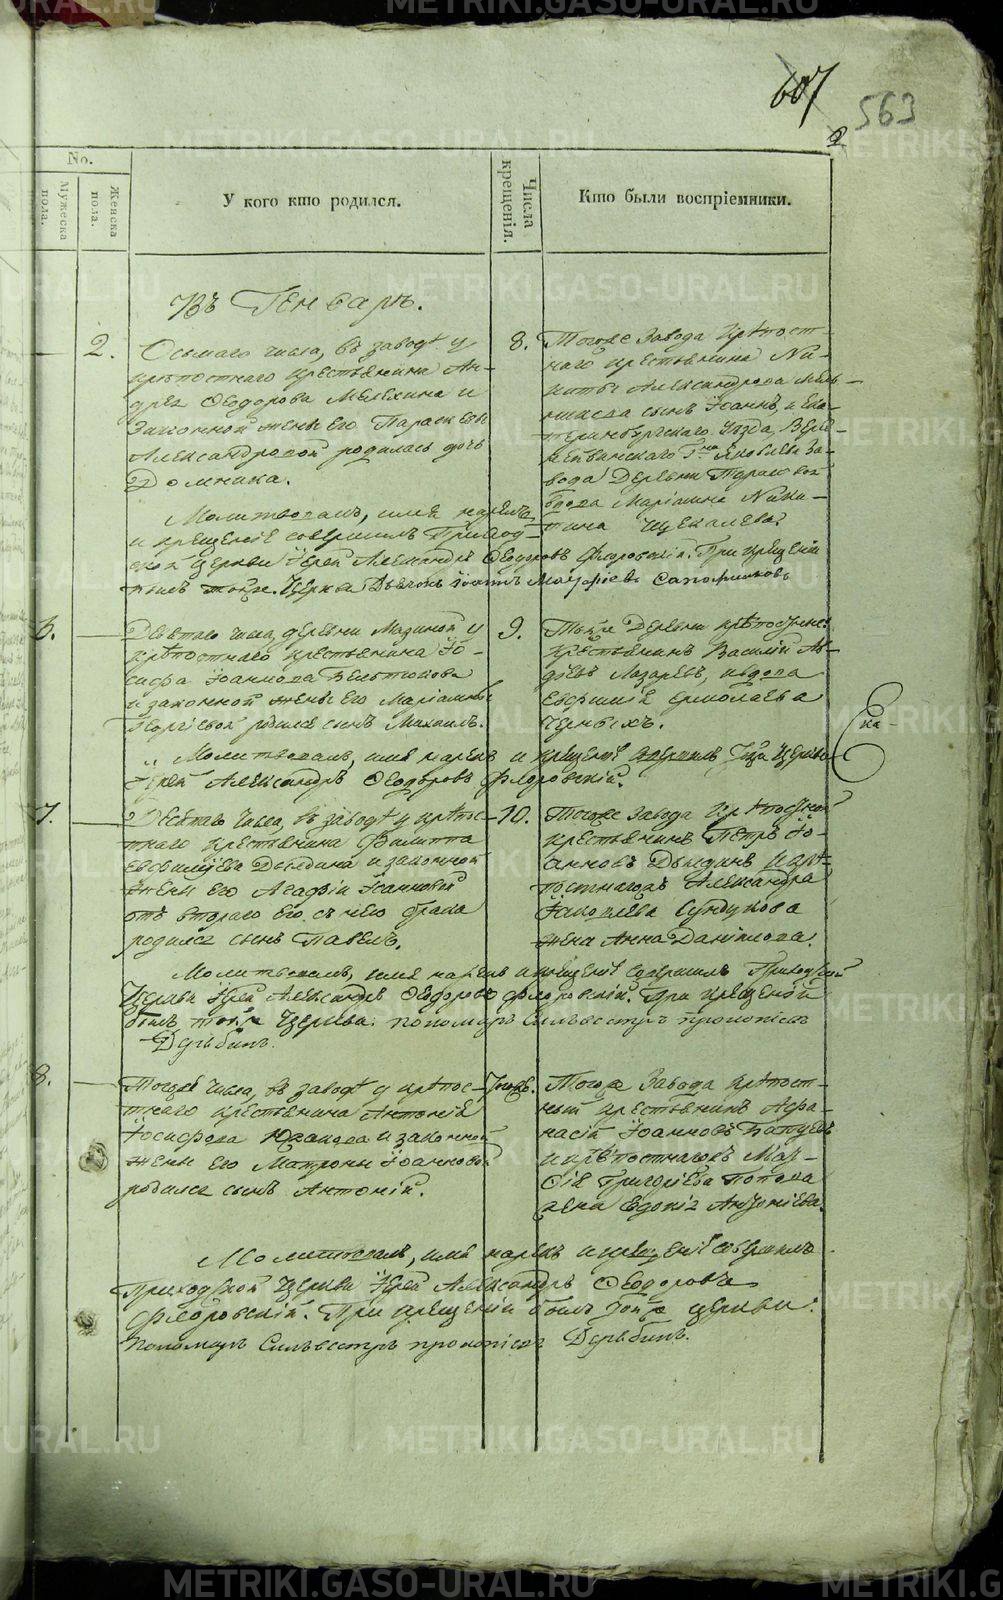 607
563
2
No.
Мужеска пола.
Женска пола.
У кого кто родился.
Числа крещенія.
Кто были воспріемники.
Въ Генварѣ.
2.
Осьмаго числа, въ заводѣ у
крѣпостнаго крестьянина Ан-
дрея Ѳеодорова Мелехина и
законной жены его Параскевы
Александровой родилась дочь
Домника.
8.
Тогоже Завода крѣпост-
наго крестьянина Ни-
киты Александрова
сынъ Іоаннъ, и Ека-
теринбургскаго уѣзда, Верх-
Яковлева За-
вода Деревни
Маріамна Ники-
тина Щекалева.
Молитвовалъ, имя нарекъ
и крещеніе совершилъ Приход-
ской Церкви Іерей Александръ Ѳеодоровъ Флоровскій. При крещеніи
былъ тойже Церкви Дьячокъ Іоаннъ Сапожниковъ
6.
Девятаго числа, деревни Мазиной у
крѣпостнаго крестьянина Іо-
сифа Іоаннова Бельтюкова
и законной жены его Маріамны
родился сынъ Михаилъ.
9.
Тойже Деревни крѣпостной
крестьянинъ Василій Ав-
деевъ Лазаревъ, и вдова
Евфимія Ермолаева
Черныхъ.
Молитвовалъ, имя нарекъ и крещеніе совершилъ, Церкви
Іерей Александръ Ѳеодоровъ Флоровскій.
7.
Десятаго числа, въ заводѣ у крѣпос-
тнаго крестьянина Филиппа
Евфиміева Дылдина и законной
жены его Агафіи Іоанновой
отъ втораго его съ нею брака
родился сынъ Павелъ.
10.
Тогоже Завода крѣпостной
крестьянинъ Петръ Іо-
анновъ Дылдинъ и крѣ-
постнагожъ Александра
Іаковлева Сундукова
жена Анна Данилова.
Молитвовалъ, имя нарекъ и крещеніе совершилъ Приходской
Церкви Іерей Александръ Ѳеодоровъ Флоровскій. При крещеніи
былъ тойже Церкви Пономарь Сильвестръ Прокопіевъ
Дерябинъ.
8.
Тогоже числа, въ заводѣ у крѣпос-
тнаго крестьянина Антонія
Іосифова и законной
жены его Матроны Іоанновой
родился сынъ Антоній.
Тогожъ.
Тогоже Завода крѣпост-
ный крестьянинъ Афа-
насій Іоанновъ
и крѣпостнагожъ Мат-
ѳія Григорьева Попова
жена Евдокія Антоніева.
Молитвовалъ, имя нарекъ и крещеніе совершилъ
Приходской Церкви Іерей Александръ Ѳеодоровъ
Флоровскій. При крещеніи былъ тойже церкви
Пономарь Сильвестръ Прокопіевъ Дерябинъ.
METRIKI.GASO-URAL.RU